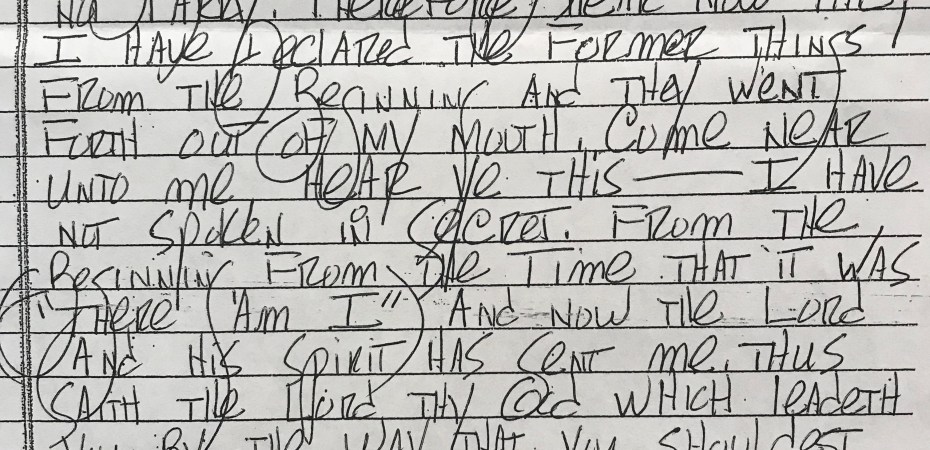 Therefore, hear now this,
I Have Declared The Former Things
From The Beginning And They Went
Forth out of my mouth. Come Near
Unto me Hear Ye This — I Have
Not Spoken in Secret. From The
Beginning From The Time That it Was
"There Am I" And Now The Lord
And His Spirit Has Sent me. Thus
Saith The Lord Thy God Which leadeth
You By The Way That You Shouldest